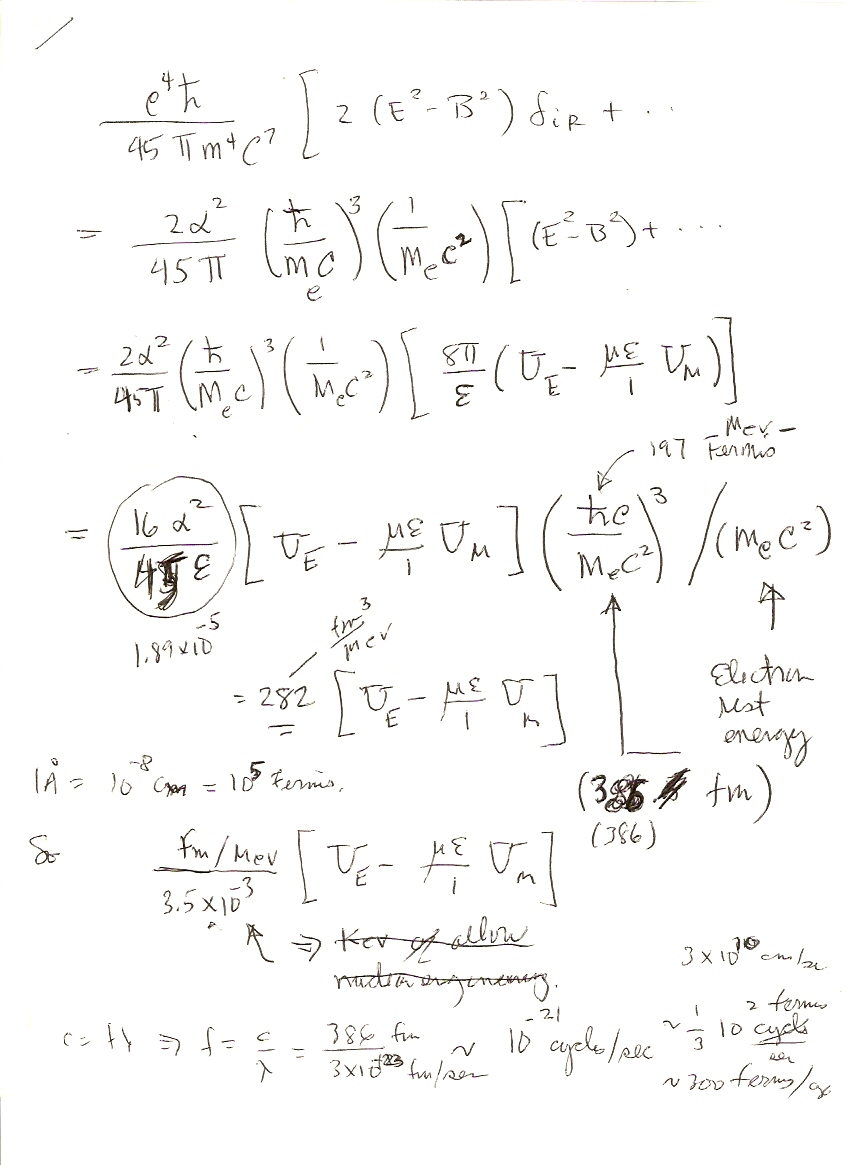 e⁴ħ / 45 π m⁴ C⁷ [ 2 (E² - B²) δiR + ···
= 2α² / 45 π (ħ / m_e C)³ (1 / m_e c²) [ (E² - B²) + ···
= 2α² / 45π (ħ / M_e c)³ (1 / M_e c²) [ 8π / ε ( U_E - με / 1 U_M ) ]
197 Mev - Fermis
= 16 α² / 45 ε [ U_E - με / 1 U_M ] ( ħc / M_e c² )³ / (m_e c²)
1.89 x 10⁻⁵
fm³ / Mev
= 282 [ U_E - με / 1 U_M ]
Electron
rest
energy
1Å = 10⁻⁸ cm = 10⁵ Fermis.
(386 fm)
(386)
So fm / Mev / 3.5 x 10⁻³ [ U_E - με / 1 U_m ]
⇒ Kev of allow
3 x 10¹⁰ cm/sec
c = fλ ⇒ f = c / λ = 386 fm / 3x10⁺²³ fm/sec ~ 10⁻²¹ cycles/sec
~ 1/3 10² fermis cycls / sec
~ 300 fermis/cyc